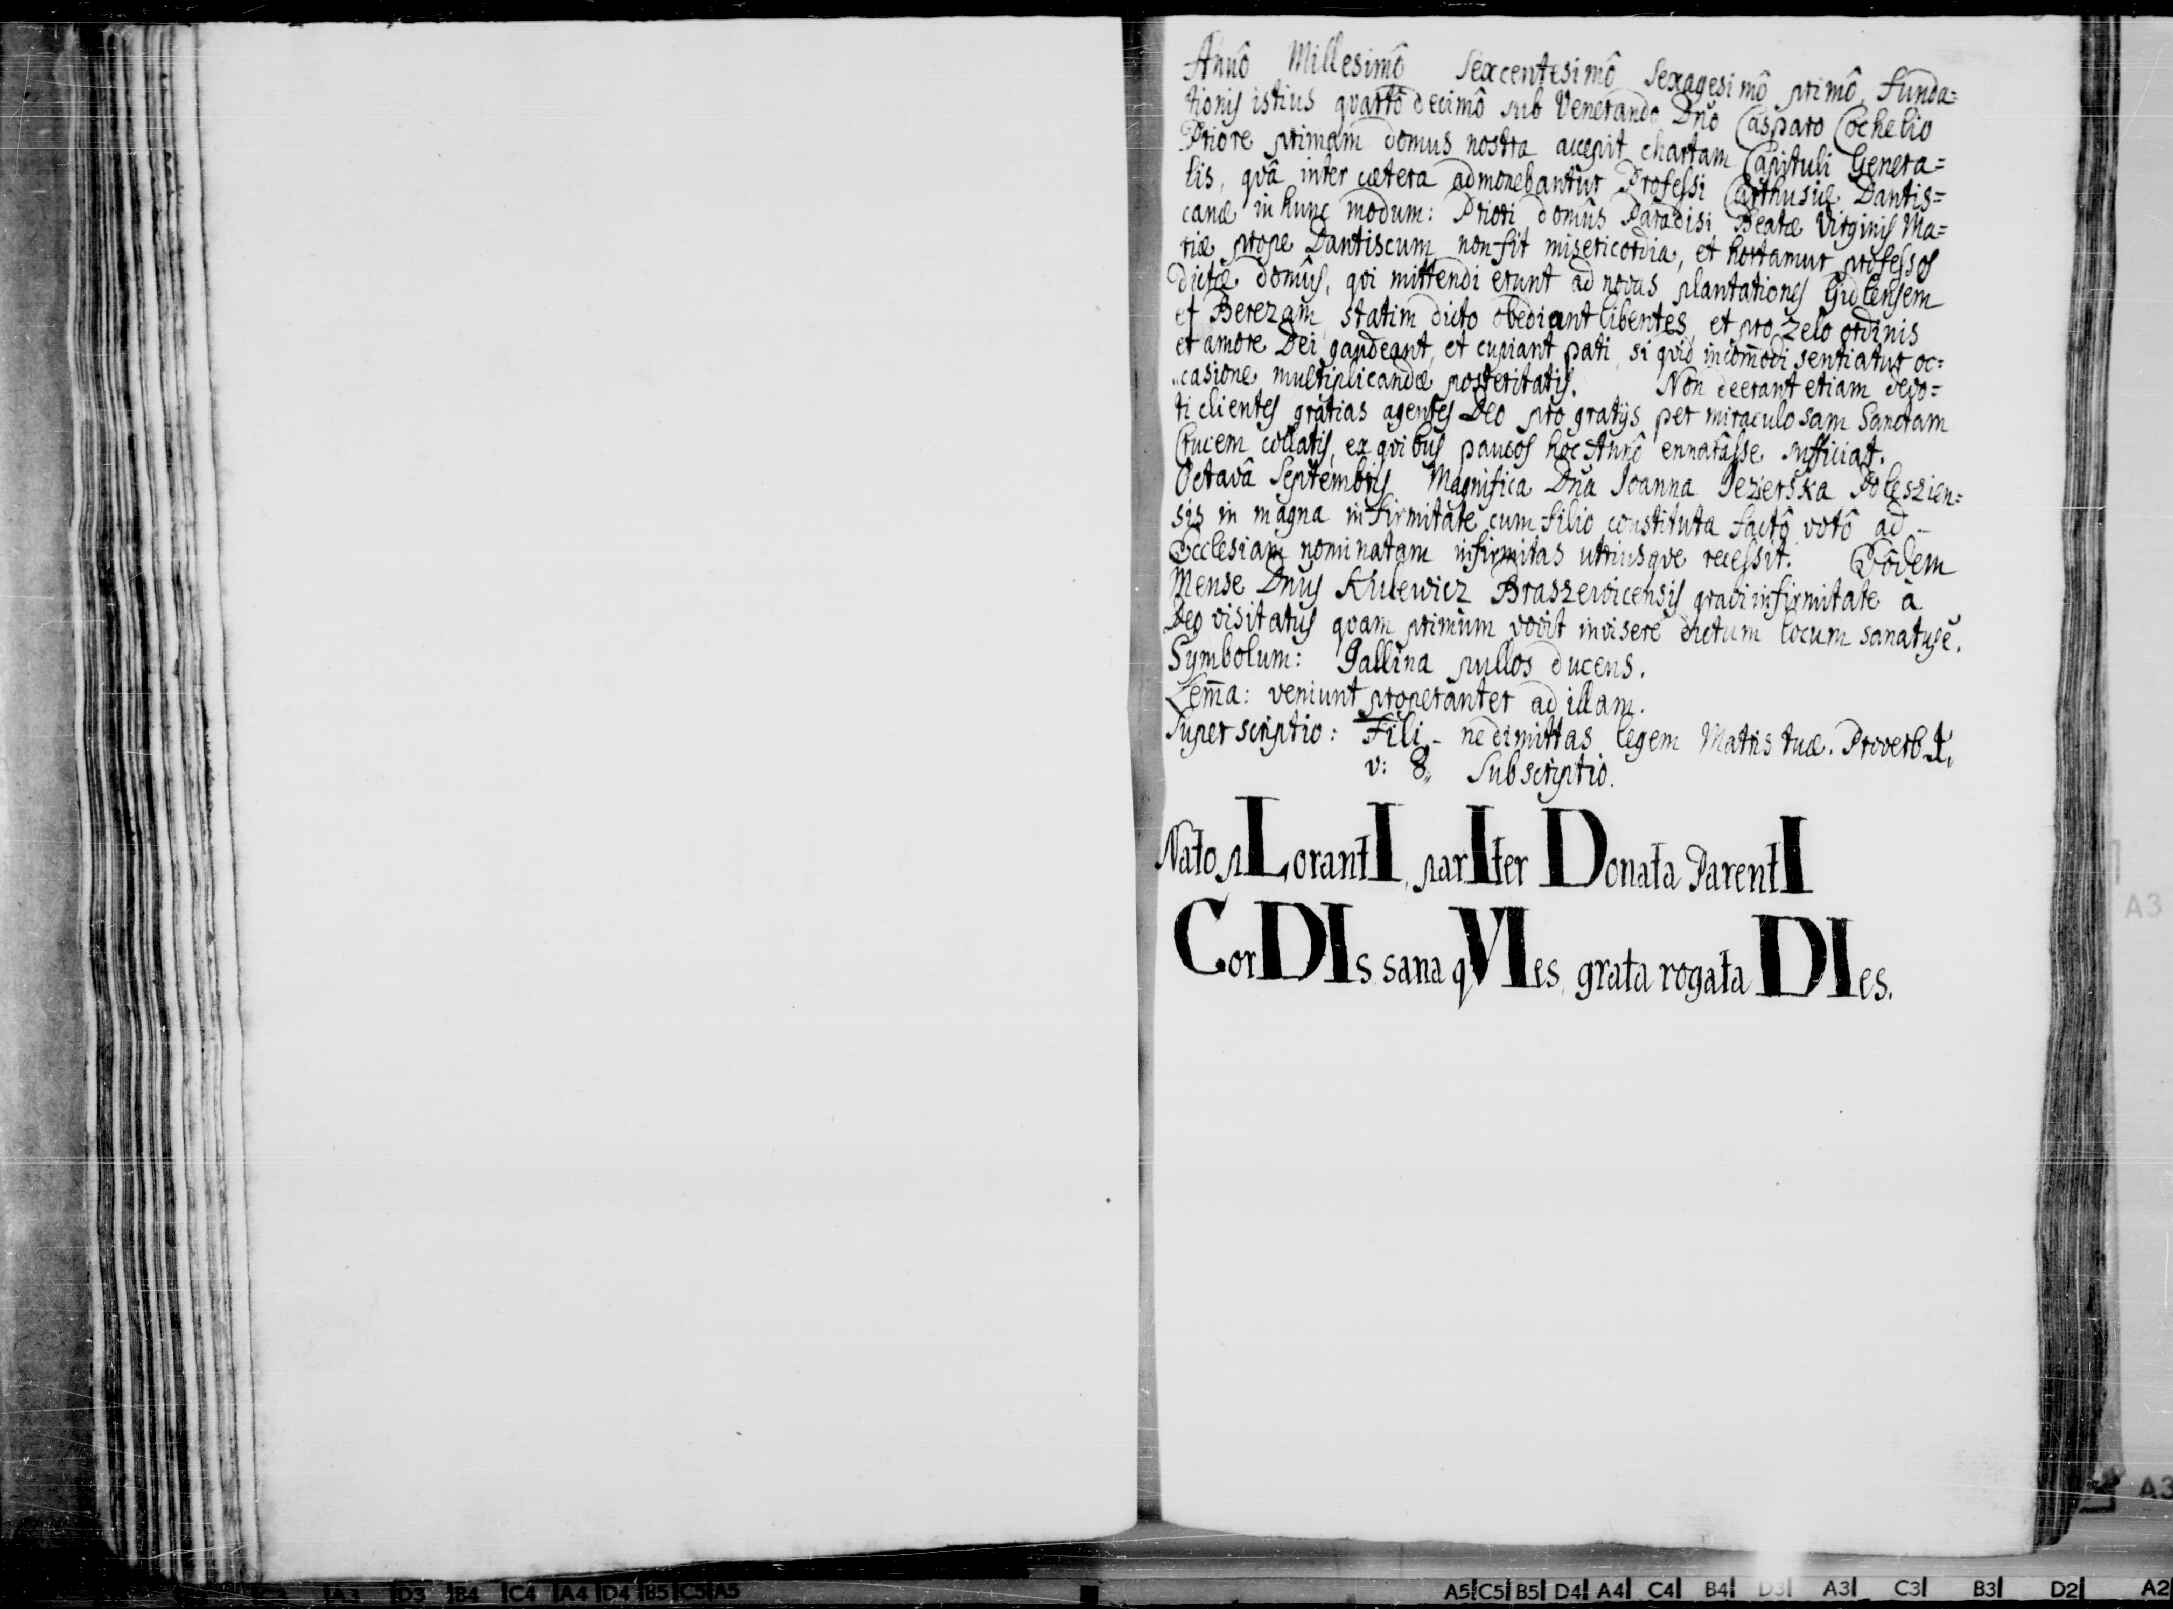 Annô Millesimô Sexcentesimô Sexagesimô primô, Funda=
tionis istius qvartô decimô sub Venerando Dño Casparo Cochelio
Priore primam domus nostra accepit chartam Capituli Genera=
lis, qvâ inter cætera admonebantur Professi Carthusiæ Dantis=
canæ in hunc modum: Priori domûs Paradisi Beatæ Virginis Ma=
riæ prope Dantiscum non fit misericordia, et hortamur professos
dictæ domûs, qvi mittendi erunt ad novas plantationes Gidlensem
et Berezam, statim dicto obediant libentes, et pro zelo ordinis
et amore Dei gaudeant, et cupiant pati, si qvid incom̄odi sentiatur oc=
casione multiplicandæ posteritatis. Non deerant etiam devo=
ti clientes gratias agentes Deo pro gratijs per miraculosam Sanctam
Crucem collatis, ex qvibus paucos hoc Annô ennarâsse sufficiat.
Octavâ Septembris Magnifica Dña Joanna Jezierska Poleszien=
sis in magna infirmitate cum filio constituta factô votô ad
Ecclesiam nominatam infirmitas utriusqve recessit. Eôdem
Mense Dñus Khilewicz Braszewicensis gravi infirmitate à
Deo visitatus qvam primùm vovit invisere dictum locum sanatus ē.
Symbolum: Gallina pullos ducens.
Lem̄a: veniunt properanter ad illam.
Superscriptio: Fili, ne dimittas legem Matris tuæ. Proverb. 1,
v: 8,, Subscriptio.
Nato pLorantI, parIter Donata ParentI
CorDIs sana qVIes, grata rogata DIes.
A3
A3
A3 D3 B4 C4 A4 D4 B5 C5 A5
A5 C5 B5 D4 A4 C4 B4 D3 A3 C3 B3 D2 A2